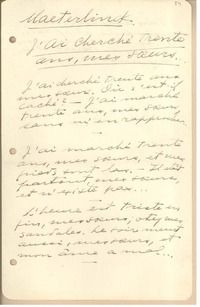 Maeterlinck.
J'ai cherché trente
ans, mes sœurs...
J'ai cherché trente ans
mes sœurs. Où s'est-il
caché? - J'ai marché
trente ans, mes sœurs
sans m'en rapprocher
J'ai marché trente
ans, mes sœurs, et mes
pieds sont las. Il était
partout mes sœurs
et n'existe pas...
L'heure est triste en
fin, mes sœurs; ôtez mes
sandales. Le soir meurt
aussi, mes sœurs, et
mon âme a mal...